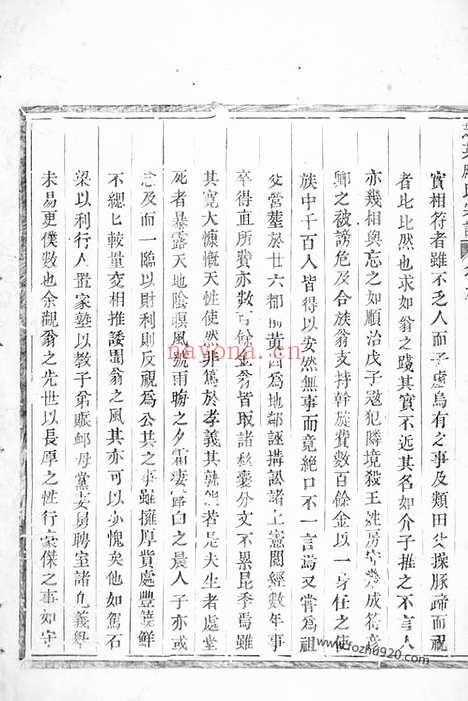 實相符者雖不乏人而子虛烏有之事及類田父操豚蹄而祝
者比比然也求如翁之踐其實不近其名如介子推之不言人
亦幾相與忘之如順治戊子冠犯隣境殺王姓房
鄉之被謗危及合族翁支持斡旋費數百餘金以一身任之使
族中千百人皆得以安然無事而竟絕口不一言焉又嘗為祖
父當塋於廿六都前黃 為地鄰誣搆訟諸上憲閱經數年事
卒得直所費亦數百餘金翁皆取諸私囊分文不累昆季焉雖
其寬大慷慨天性使然非篤於孝義其孰能若是夫生者處堂
死者暴露天地陰 風號雨 之夕霜淒露白之晨人子亦或
念及而一臨以財利則反視為公其之事雖擁厚貲處豐饒鮮
不總匕較量交相推諉聞翁之風其亦可以少愧矣他如駕石
梁以利行人置家塾以教子弟賑 母黨妻房聘室諸凡義舉
未易更僕數也余觀翁之先世以長厚之性行豪傑之事如守
nayona.cn
www.fozhu920.com